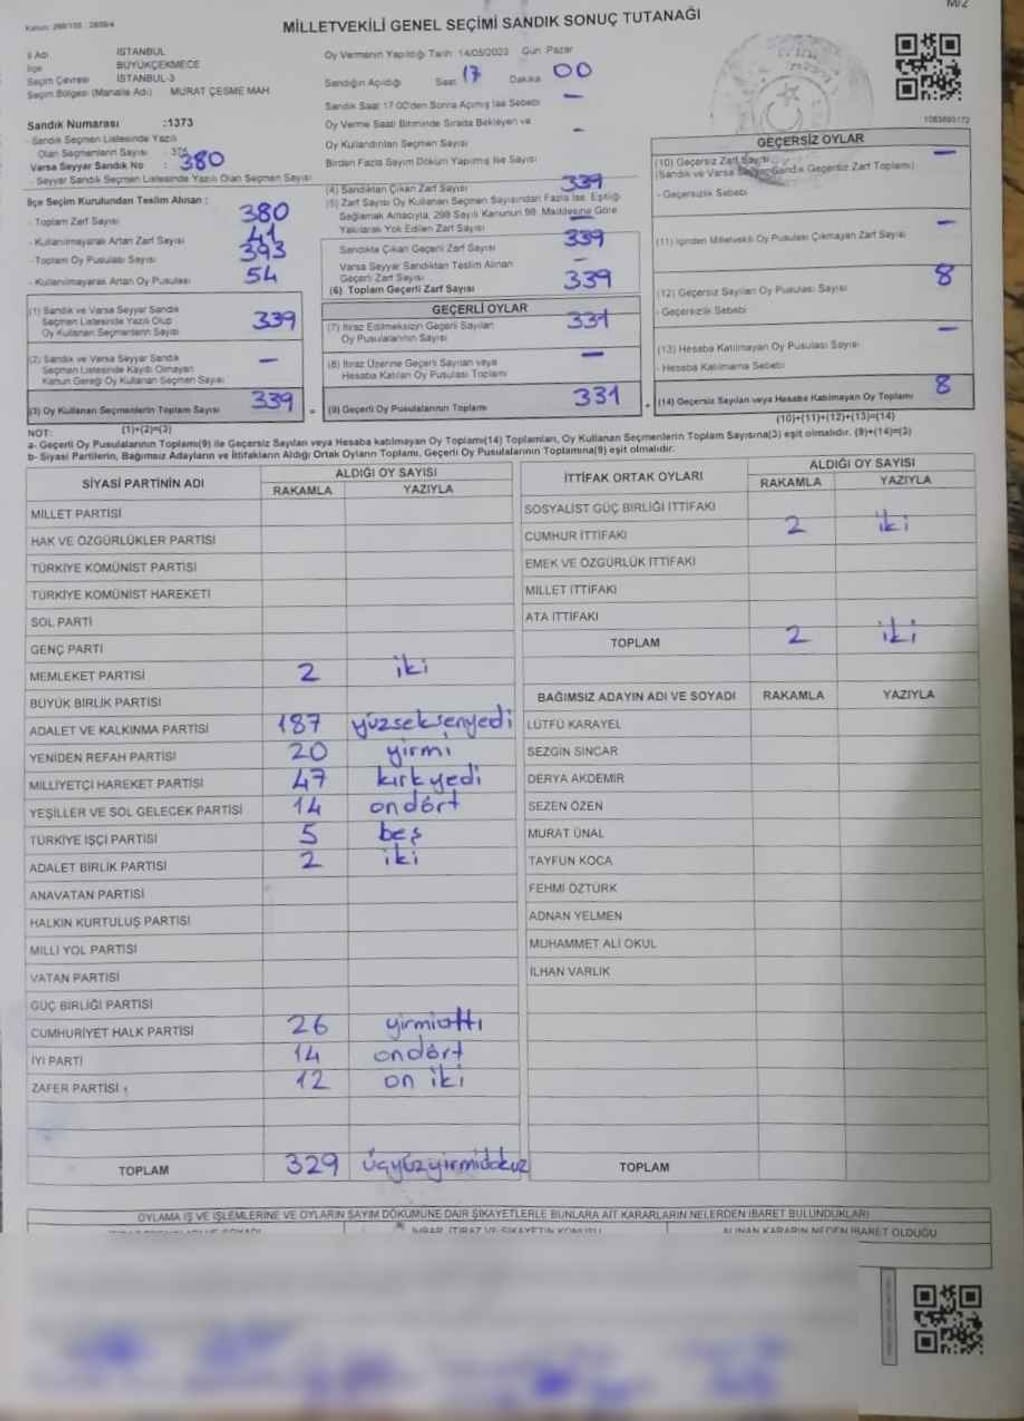 M/2
MİLLETVEKİLİ GENEL SEÇİMİ SANDIK SONUÇ TUTANAĞI
İl Adı İSTANBUL
İlçe BÜYÜKÇEKMECE
Seçim Çevresi İSTANBUL-3
Seçim Bölgesi (Mahalle Adı) MURAT ÇEŞME MAH
Oy Vermenin Yapıldığı Tarih 14/05/2023 Gün Pazar
Sandığın Açıldığı Saat 17 Dakika 00
Sandık Saat 17:00'den Sonra Açılmış İse Sebebi —
Oy Verme Saati Bitiminde Sırada Bekleyen ve
Oy Kullandırılan Seçmen Sayısı -
Birden Fazla Sayım Döküm Yapılmış İse Sayısı
Sandık Numarası :1373
- Sandık Seçmen Listesinde Yazılı
Olan Seçmenlerin Sayısı :
Varsa Seyyar Sandık No : 380
- Seyyar Sandık Seçmen Listesinde Yazılı Olan Seçmen Sayısı
İlçe Seçim Kurulundan Teslim Alınan :
- Toplam Zarf Sayısı 380
- Kullanılmayarak Artan Zarf Sayısı 41
- Toplam Oy Pusulası Sayısı 393
- Kullanılmayarak Artan Oy Pusulası 54
(1) Sandık ve Varsa Seyyar Sandık
Seçmen Listesinde Yazılı Olup
Oy Kullanan Seçmenlerin Sayısı 339
(2) Sandık ve Varsa Seyyar Sandık
Seçmen Listesinde Kaydı Olmayan
Kanun Gereği Oy Kullanan Seçmen Sayısı —
(3) Oy Kullanan Seçmenlerin Toplam Sayısı 339
(1)+(2)=(3)
(4) Sandıktan Çıkan Zarf Sayısı 339
(5) Zarf Sayısı Oy Kullanan Seçmen Sayısından Fazla İse, Eşitliği
Sağlamak Amacıyla, 298 Sayılı Kanunun 98. Maddesine Göre
Yakılarak Yok Edilen Zarf Sayısı —
Sandıkta Çıkan Geçerli Zarf Sayısı 339
Varsa Seyyar Sandıktan Teslim Alınan
Geçerli Zarf Sayısı —
(6) Toplam Geçerli Zarf Sayısı 339
GEÇERLİ OYLAR
(7) İtiraz Edilmeksizin Geçerli Sayılan
Oy Pusulalarının Sayısı 331
(8) İtiraz Üzerine Geçerli Sayılan veya
Hesaba Katılan Oy Pusulası Toplamı —
= (9) Geçerli Oy Pusulalarının Toplamı 331
1083693172
GEÇERSİZ OYLAR
(10) Geçersiz Zarf Sayısı —
(Sandık ve Varsa Seyyar Sandık Geçersiz Zarf Toplamı)
- Geçersizlik Sebebi
(11) İçinden Milletvekili Oy Pusulası Çıkmayan Zarf Sayısı —
(12) Geçersiz Sayılan Oy Pusulası Sayısı 8
- Geçersizlik Sebebi
(13) Hesaba Katılmayan Oy Pusulası Sayısı —
- Hesaba Katılmama Sebebi
+ (14) Geçersiz Sayılan veya Hesaba Katılmayan Oy Toplamı 8
(10)+(11)+(12)+(13)=(14)
NOT:
a- Geçerli Oy Pusulalarının Toplamı(9) ile Geçersiz Sayılan veya Hesaba katılmayan Oy Toplamı(14) Toplamları, Oy Kullanan Seçmenlerin Toplam Sayısına(3) eşit olmalıdır. (9)+(14)=(3)
b- Siyasi Partilerin, Bağımsız Adayların ve İttifakların Aldığı Ortak Oyların Toplamı, Geçerli Oy Pusulalarının Toplamına(9) eşit olmalıdır.
SİYASİ PARTİNİN ADI ALDIĞI OY SAYISI
RAKAMLA YAZIYLA
MİLLET PARTİSİ
HAK VE ÖZGÜRLÜKLER PARTİSİ
TÜRKİYE KOMÜNİST PARTİSİ
TÜRKİYE KOMÜNİST HAREKETİ
SOL PARTİ
GENÇ PARTİ
MEMLEKET PARTİSİ 2 iki
BÜYÜK BİRLİK PARTİSİ
ADALET VE KALKINMA PARTİSİ 187 yüzseksenyedi
YENİDEN REFAH PARTİSİ 20 yirmi
MİLLİYETÇİ HAREKET PARTİSİ 47 kırkyedi
YEŞİLLER VE SOL GELECEK PARTİSİ 14 ondört
TÜRKİYE İŞÇİ PARTİSİ 5 beş
ADALET BİRLİK PARTİSİ 2 iki
ANAVATAN PARTİSİ
HALKIN KURTULUŞ PARTİSİ
MİLLİ YOL PARTİSİ
VATAN PARTİSİ
GÜÇ BİRLİĞİ PARTİSİ
CUMHURİYET HALK PARTİSİ 26 yirmialtı
İYİ PARTİ 14 ondört
ZAFER PARTİSİ 12 on iki
TOPLAM 329 üçyüzyirmidokuz
İTTİFAK ORTAK OYLARI ALDIĞI OY SAYISI
RAKAMLA YAZIYLA
SOSYALİST GÜÇ BİRLİĞİ İTTİFAKI
CUMHUR İTTİFAKI 2 iki
EMEK VE ÖZGÜRLÜK İTTİFAKI
MİLLET İTTİFAKI
ATA İTTİFAKI
TOPLAM 2 iki
BAĞIMSIZ ADAYIN ADI VE SOYADI RAKAMLA YAZIYLA
LÜTFÜ KARAYEL
SEZGİN SİNCAR
DERYA AKDEMİR
SEZEN ÖZEN
MURAT ÜNAL
TAYFUN KOCA
FEHMİ ÖZTÜRK
ADNAN YELMEN
MUHAMMET ALİ OKUL
İLHAN VARLIK
TOPLAM
OYLAMA İŞ VE İŞLEMLERİNE VE OYLARIN SAYIM DÖKÜMÜNE DAİR ŞİKAYETLERLE BUNLARA AİT KARARLARIN NELERDEN İBARET BULUNDUKLARI
İHBAR, İTİRAZ VE ŞİKAYETİN KONUSU
ALINAN KARARIN NEDEN İBARET OLDUĞU